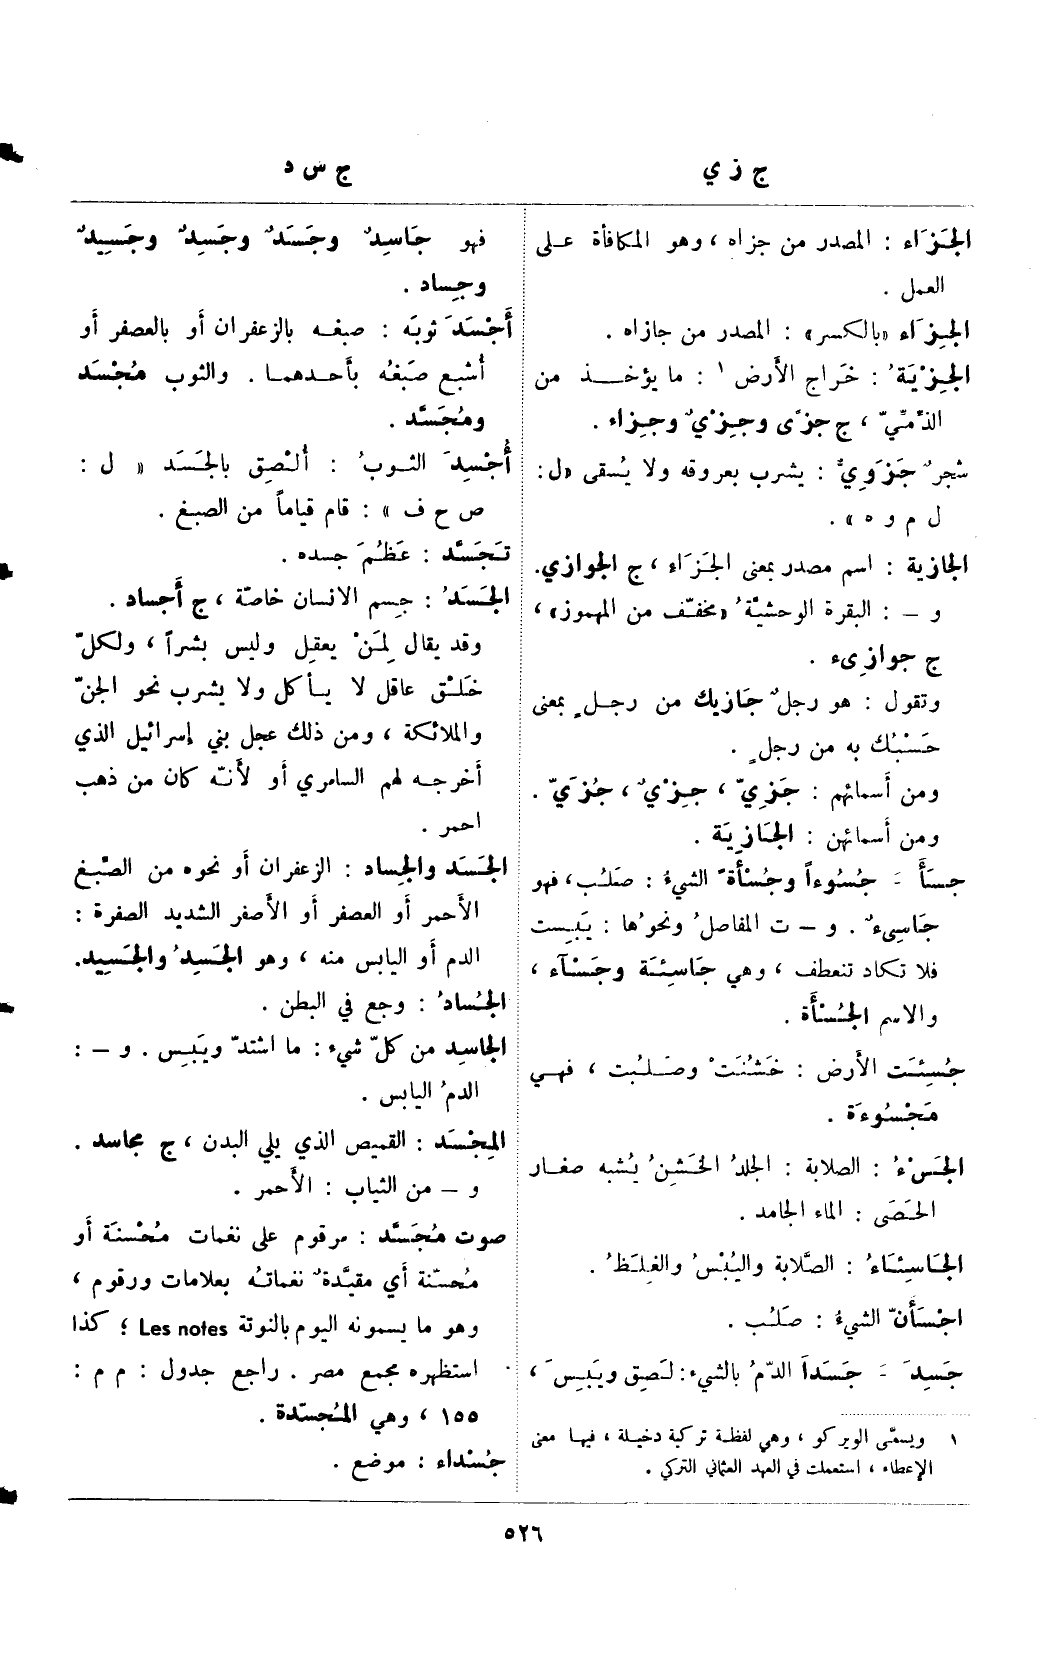 ج ز ي
ج س د
الجَزَاء : المصدر من جزاه ، وهو المكافأة عـلى
العمل .
الجِزَاء «بالكسر» : المصدر من جازاه .
الجِزْيَةُ : خَراج الأرض ١ : ما يؤخـــذ من
الذّمّيّ ، ج جزًى وجِزْيٌ وجِزاء .
شجرٌ جَزَوِيٌّ : يشرب بعروقه ولا يُسقى «ل:
ل م و ه» .
الجازية : اسم مصدر بمعنى الجَزَاء ، ج الجوازي.
و – : البقرة الوحشيّةُ «مخفّف من المهموز» ،
ج جوازِىء .
وتقول : هو رجلٌ جَازيك من رجـلٍ بمعنى
حَسْبُك به من رجلٍ .
ومن أسمائهم : جَزِيّ ، جِزْيٌ ، جُزَيّ .
ومن أسمائهن : الجَازِيَة .
جسَأَ َ جُسُوءاً وجُسْأَةً الشيءُ : صلُب، فهو
جَاسِىءٌ . و – ت المفاصلُ ونحوُها : يَبِست
فلا تكاد تنعطف ، وهي جَاسِئَة وجَسْآء ،
والاسم الجُسْأَة .
جُسِئَت الأرض : خَشُنَتْ وصَـلُبت ، فهـي
مَجْسُوءَة .
الجَسْءُ : الصلابة : الجلدُ الخَشِنُ يُشبه صغـار
الحَصَى : الماء الجامد .
الجَاسِئَاءُ : الصَّلابة واليُبْسُ والغِلَظُ .
اجْسَأَنّ الشيءُ : صَلُب .
جَسِدَ َ جَسَداً الدّمُ بالشيء: لَصِق ويَبِسَ ،
١ ويسمَّى الويركو ، وهي لفظة تركية دخيلة ، فيهـا معنى
الإعطاء ، استعملت في العهد العثماني التركي .
فهو جَاسِدٌ وجَسَدٌ وجَسِدٌ وجَسِيدٌ
وجِساد .
أَجْسَدَ ثوبَه : صبغـه بالزعفران أو بالعصفر أو
أُشبع صَبغُه بأحـدهمـا . والثوب مُجْسَد
ومُجَسَّد .
أُجْسِدَ الثـوبُ : أُلْصِق بالجَسَد « ل :
ص ح ف » : قام قياماً من الصبغ .
تَجَسَّد : عَظُمَ جسده .
الجَسَدُ : جِسم الانسان خاصّة ، ج أَجساد .
وقد يقال لِمَنْ يعقِل وليس بشراً ، ولكلّ
خَلْق عاقل لا يـأكل ولا يشرب نحو الجنّ
والملائكة ، ومن ذلك عجل بني إسرائيل الذي
أخرجـه لهم السامري أو لأنّه كان من ذهب
احمر .
الجَسَد والجِساد : الزعفران أو نحوه من الصِّبْغ
الأحمر أو العصفر أو الأصفر الشديد الصفرة :
الدم أو اليابس منه ، وهو الجَسِدُ والجَسِيد.
الجُسادُ : وجع في البطن .
الجاسِد من كلّ شيء : ما اشتدّ ويَبِس . و – :
الدمُ اليابس .
المِجْسَد : القميص الذي يلي البدن ، ج مجاسد .
و – من الثياب : الأَحمر .
صوت مُجَسَّد : مرقوم على نغمات مُحْسنَة أو
مُحسّنة أي مقيَّدةٌ نغماتهُ بعلامات ورقوم ،
وهو ما يسمونه اليوم بالنوتة Les notes ؛ كذا
استظهره مجمع مصر . راجع جدول : م م :
١٥٥ ، وهي المُجسّدة .
جُسْداء : موضع .
٥٢٦